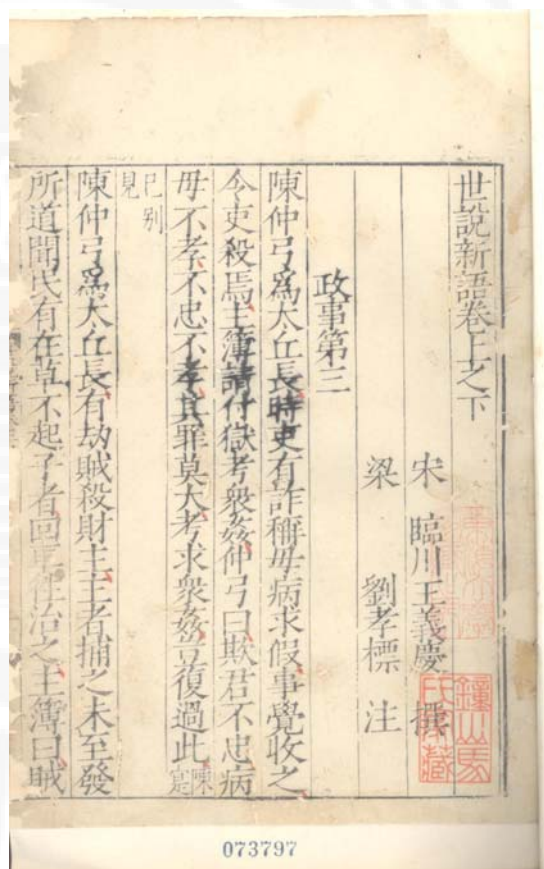 世說新語卷上之下
宋　臨川王義慶　撰
梁　劉孝標　注
政事第三
陳仲弓爲太丘長時吏有詐稱母病求假事覺收之
令吏殺焉主簿請付獄考衆姦仲弓曰欺君不忠病
母不孝不忠不孝其罪莫大考求衆姦豈復過此陳寔
已别見
陳仲弓爲太丘長有劫賊殺財主主者捕之未至發
所道聞民有在草不起子者回車往治之主簿曰賊
鍾山
藏
073797